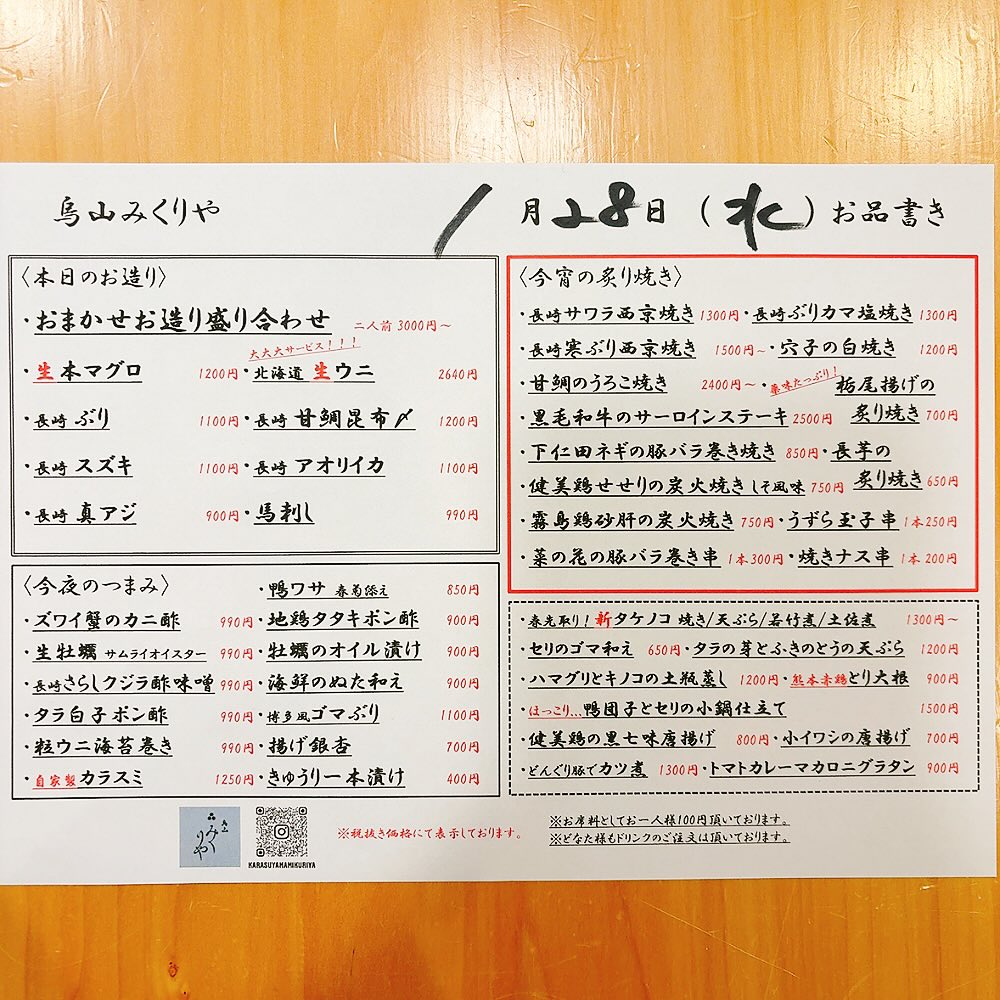 烏山みくりや 1月28日(水)お品書き
〈本日のお造り〉
・おまかせお造り盛り合わせ 二人前 3000円〜
大大大サービス!!!
・生本マグロ 1200円・北海道 生ウニ 2640円
・長崎 ぶり 1100円・長崎 甘鯛昆布〆 1200円
・長崎 スズキ 1100円・長崎 アオリイカ 1100円
・長崎 真アジ 900円・馬刺し 990円
〈今夜のつまみ〉 ・鴨ワサ 春菊添え 850円
・ズワイ蟹のカニ酢 990円・地鶏タタキポン酢 900円
・生牡蠣 サムライオイスター 990円・牡蠣のオイル漬け 900円
・長崎さらしクジラ酢味噌 990円・海鮮のぬた和え 900円
・タラ白子ポン酢 990円・博多風ゴマぶり 1100円
・粒ウニ海苔巻き 990円・揚げ銀杏 700円
・自家製カラスミ 1250円・きゅうり一本漬け 400円
〈今宵の炙り焼き〉
・長崎サワラ西京焼き 1300円・長崎ぶりカマ塩焼き 1300円
・長崎寒ぶり西京焼き 1500円〜・穴子の白焼き 1200円
・甘鯛のうろこ焼き 2400円〜・薬味たっぷり!栃尾揚げの
・黒毛和牛のサーロインステーキ 2500円 炙り焼き 700円
・下仁田ネギの豚バラ巻き焼き 850円・長芋の
・健美鶏せせりの炭火焼き しそ風味 750円 炙り焼き 650円
・霧島鶏砂肝の炭火焼き 750円・うずら玉子串 1本250円
・菜の花の豚バラ巻き串 1本300円・焼きナス串 1本200円
・春先取り!新タケノコ 焼き/天ぷら/若竹煮/土佐煮 1300円〜
・セリのゴマ和え 650円・タラの芽とふきのとうの天ぷら 1200円
・ハマグリとキノコの土瓶蒸し 1200円・熊本赤鶏とり大根 900円
・ほっこり...鴨団子とセリの小鍋仕立て 1500円
・健美鶏の黒七味唐揚げ 800円・小イワシの唐揚げ 700円
・どんぐり豚でカツ煮 1300円・トマトカレーマカロニグラタン 900円
烏山みくりや
KARASUYAMAMIKURIYA
※税抜き価格にて表示しております。
※お席料としてお一人様100円頂いております。
※どなた様もドリンクのご注文は頂いております。